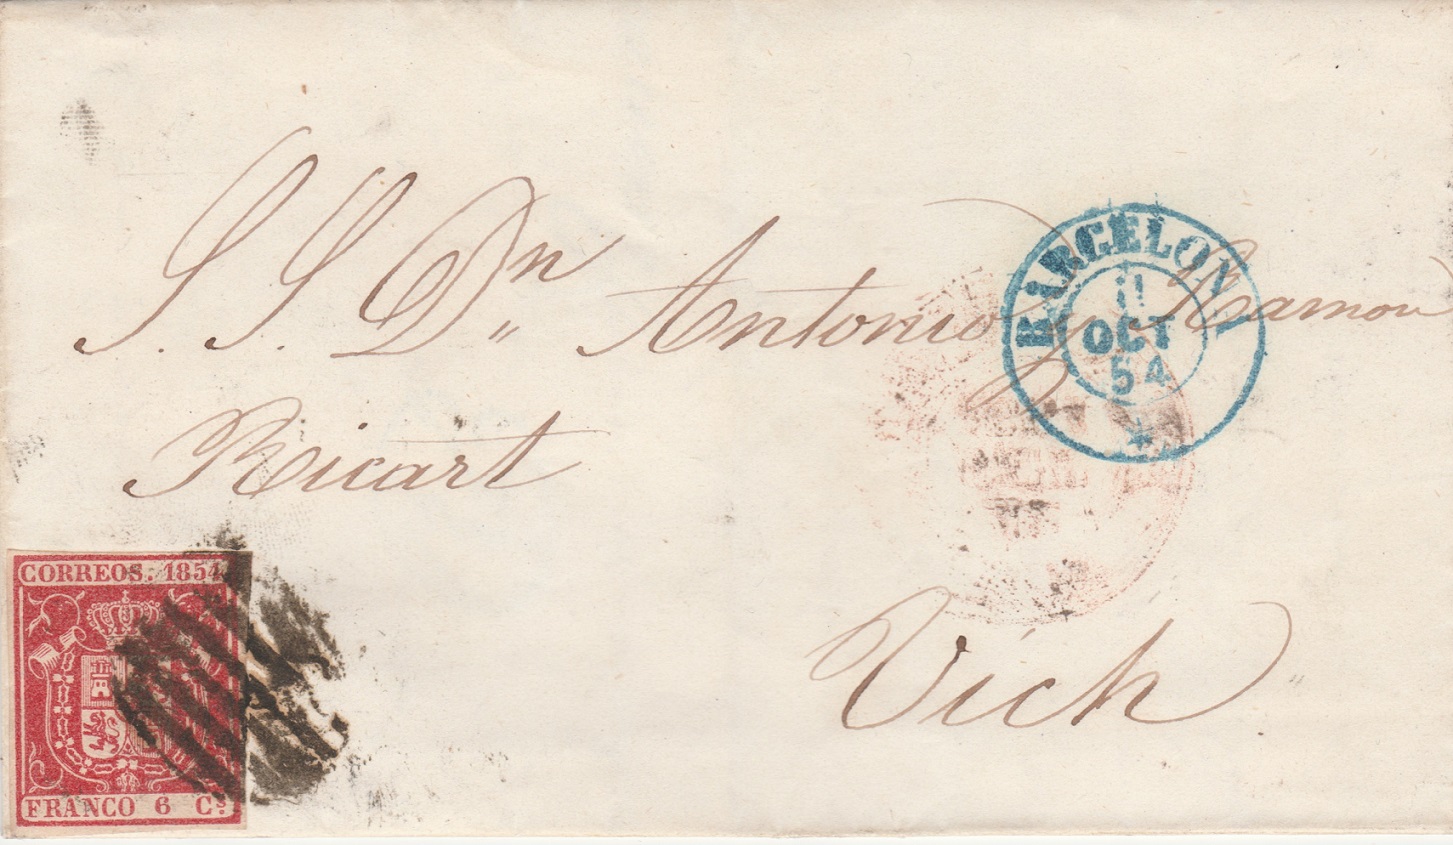 S. S. Dn. Antonio y Ramon
Ricart
BARCELONA
11
OCT
54
Vich
CORREOS. 1854
FRANCO 6 Cs.